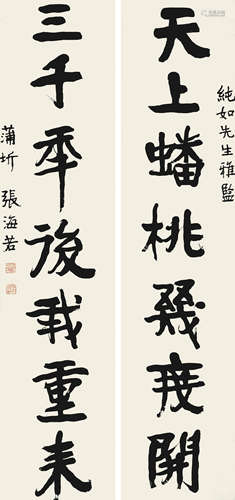 純如先生雅監
天上蟠桃幾度開
三千年後我重來
蒲圻 張海若